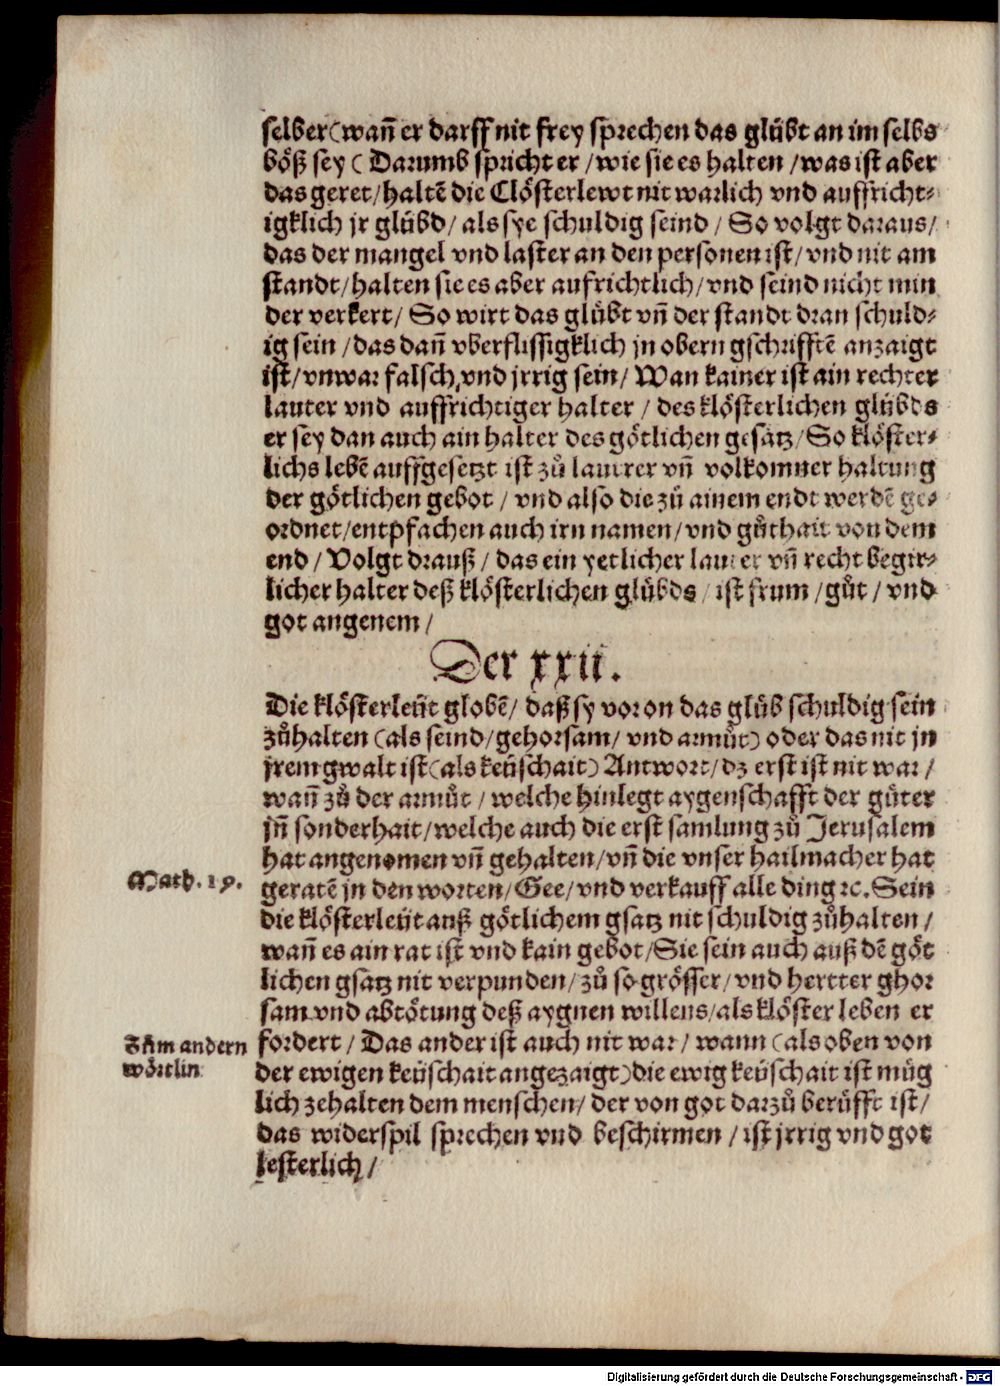 selber(wañ er darff nit frey sprechen das glübt an im selbs
böß sey ( Darumb spricht er / wie sie es halten / was ist aber
das geret / haltē die Clösterlewt nit warlich vnd auffricht⸗
igklich jr glübd / als sye schuldig seind / So volgt daraus /
das der mangel vnd laster an den personen ist / vnd nit am
standt / halten sie es aber aufrichtlich / vnd seind nicht min
der verkert / So wirt das glübt vñ der standt dran schuld⸗
ig sein / das dañ vberflissigklich jn obern gschrifftē anzaigt
ist / vnwar falsch, vnd jrrig sein / Wan kainer ist ain rechter
lauter vnd auffrichtiger halter / des klösterlichen glübds
er sey dan auch ain halter des götlichen gesätz / So klöster⸗
lichs lebē auffgesetzt ist zů lautrer vñ volkomner haltung
der götlichen gebot / vnd also die zů ainem endt werdē ge⸗
ordnet / entpfachen auch irn namen / vnd gůthait von dem
end / Volgt drauß / das ein yetlicher lauter vñ recht begir⸗
licher halter deß klösterlichen glübds / ist frum / gůt / vnd
got angenem /
Der xxii.
Die klösterleüt globē / daß sy voron das glüb schuldig sein
zůhalten (als seind / gehorsam / vnd armůt) oder das nit jn
jrem gwalt ist (als keüschait) Antwort / dz erst ist nit war /
wañ zů der armůt / welche hinlegt aygenschafft der güter
jñ sonderhait / welche auch die erst samlung zů Jerusalem
hat angenomen vñ gehalten / vñ die vnser hailmacher hat
Math. 19.
geratē jn den worten / Gee / vnd verkauff alle ding ꝛc. Sein
die klösterleüt auß götlichem gsatz nit schuldig zůhalten /
wañ es ain rat ist vnd kain gebot / Sie sein auch auß dē göt
lichen gsatz nit verpunden / zů so grösser / vnd hertter ghor
sam vnd abtötung deß aygnen willens / als klöster leben er
Zům andern
wörtlin
fordert / Das ander ist auch nit war / wann (als oben von
der ewigen keüschait angezaigt) die ewig keüschait ist müg
lich zehalten dem menschen / der von got darzů berüfft ist /
das widerspil sprechen vnd beschirmen / ist jrrig vnd got
lesterlich /
Digitalisierung gefördert durch die Deutsche Forschungsgemeinschaft - DFG